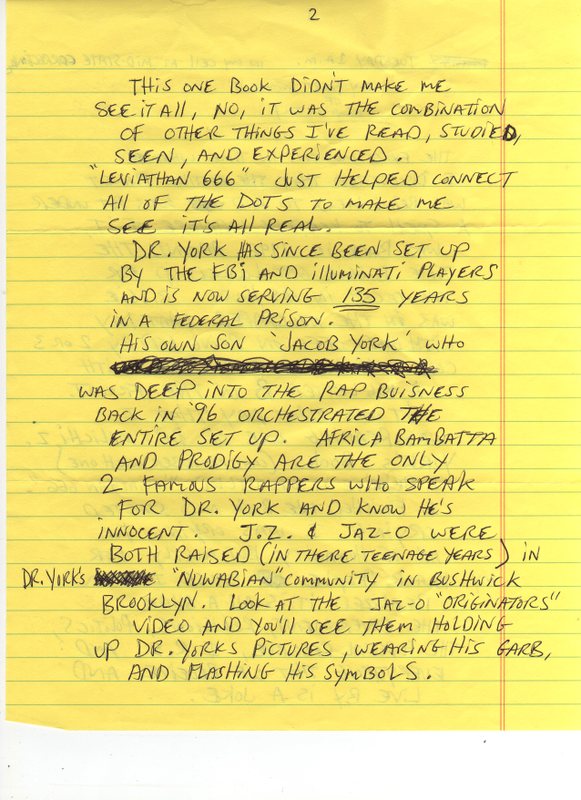 2
THIS ONE BOOK DIDN'T MAKE ME
SEE IT ALL, NO, IT WAS THE COMBINATION
OF OTHER THINGS I'VE READ, STUDIED,
SEEN, AND EXPERIENCED.
"LEVIATHAN 666" JUST HELPED CONNECT
ALL OF THE DOTS TO MAKE ME
SEE IT'S ALL REAL.
DR. YORK HAS SINCE BEEN SET UP
BY THE FBI AND ILLUMINATI PLAYERS
AND IS NOW SERVING 135 YEARS
IN A FEDERAL PRISON.
HIS OWN SON 'JACOB YORK' WHO
WAS DEEP INTO THE RAP BUISNESS
BACK IN '96 ORCHESTRATED THE
ENTIRE SET UP. AFRICA BAMBATTA
AND PRODIGY ARE THE ONLY
2 FAMOUS RAPPERS WHO SPEAK
FOR DR. YORK AND KNOW HE'S
INNOCENT. J.Z. & JAZ-O WERE
BOTH RAISED (IN THERE TEENAGE YEARS) IN
DR. YORK'S "NUWABIAN" COMMUNITY IN BUSHWICK
BROOKLYN. LOOK AT THE JAZ-O "ORIGINATORS"
VIDEO AND YOU'LL SEE THEM HOLDING
UP DR. YORKS PICTURES, WEARING HIS GARB,
AND FLASHING HIS SYMBOLS.